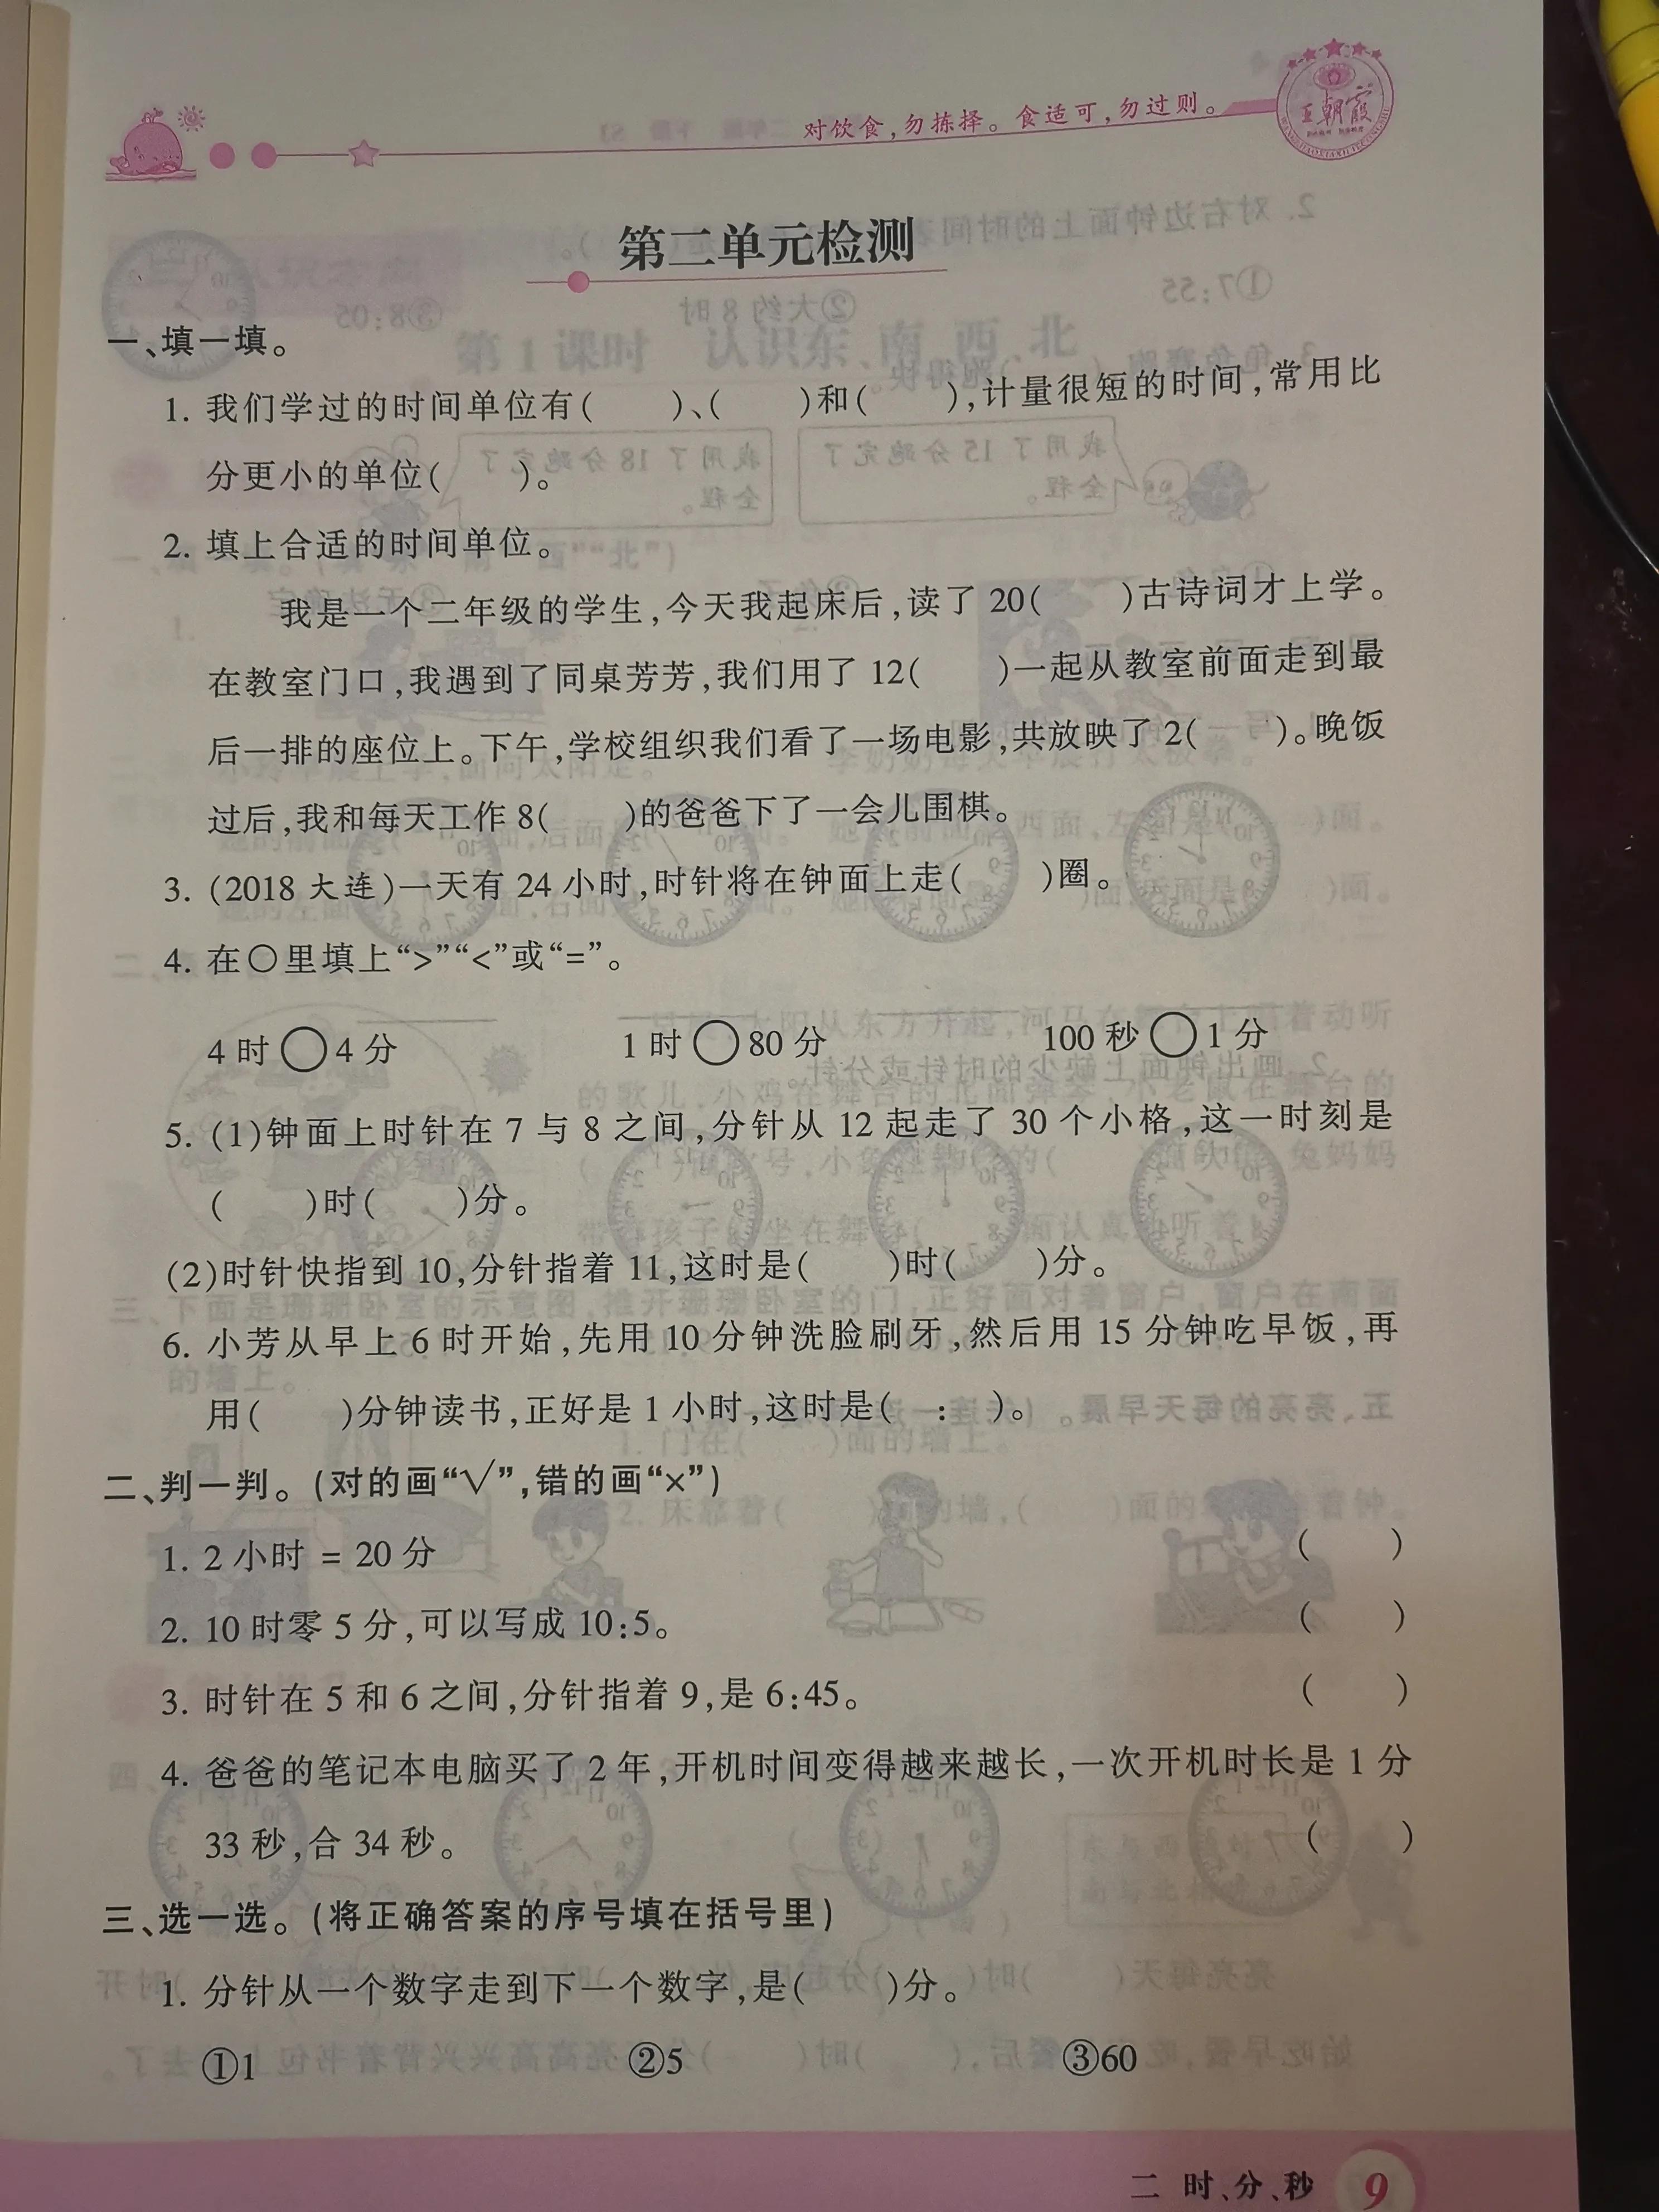 对饮食,勿拣择。食适可,勿过则。
王朝霞
第二单元检测
一、填一填。
1. 我们学过的时间单位有(  )、(  )和(  ),计量很短的时间,常用比
分更小的单位(  )。
2. 填上合适的时间单位。
我是一个二年级的学生,今天我起床后,读了20(  )古诗词才上学。
在教室门口,我遇到了同桌芳芳,我们用了12(  )一起从教室前面走到最
后一排的座位上。下午,学校组织我们看了一场电影,共放映了2(  )。晚饭
过后,我和每天工作8(  )的爸爸下了一会儿围棋。
3. (2018大连)一天有24小时,时针将在钟面上走(  )圈。
4. 在○里填上“>”“<”或“=”。
4时○4分  1时○80分  100秒○1分
5. (1)钟面上时针在7与8之间,分针从12起走了30个小格,这一时刻是
(  )时(  )分。
(2)时针快指到10,分针指着11,这时是(  )时(  )分。
6. 小芳从早上6时开始,先用10分钟洗脸刷牙,然后用15分钟吃早饭,再
用(  )分钟读书,正好是1小时,这时是(  :  )。
二、判一判。(对的画“√”,错的画“×”)
1. 2小时 = 20分  (  )
2. 10时零5分,可以写成10:5。  (  )
3. 时针在5和6之间,分针指着9,是6:45。  (  )
4. 爸爸的笔记本电脑买了2年,开机时间变得越来越长,一次开机时长是1分
33秒,合34秒。  (  )
三、选一选。(将正确答案的序号填在括号里)
1. 分针从一个数字走到下一个数字,是(  )分。
①1  ②5  ③60
二 时、分、秒 9